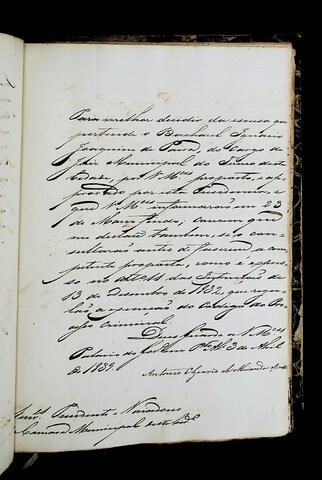 Para melhor decidir da escusa que
pertende o Bacharel Ignacio
Joaquim de Paiva, do Cargo de
Juiz Municipal do Termo desta
Cidade, por V.Mces proposto, e ap
provado por esta Presidencia, e
que V.Mces informarão em 23
de Março findo; convem que
me declarem tambem, se o con
sultarão antes de fazerem a com
petente proposta, como é expres
so no das Instrucções de
13 de Dezembro de 1832, que regu
lão a execução do Codigo do Pro
cesso Criminal.
Deos Guarde a V.Mces
Palacio do Governo 3 de Abril
de 1839.
Antonio de Miranda
Snrs. Presidente, Vereadores
Camara Municipal desta Cide